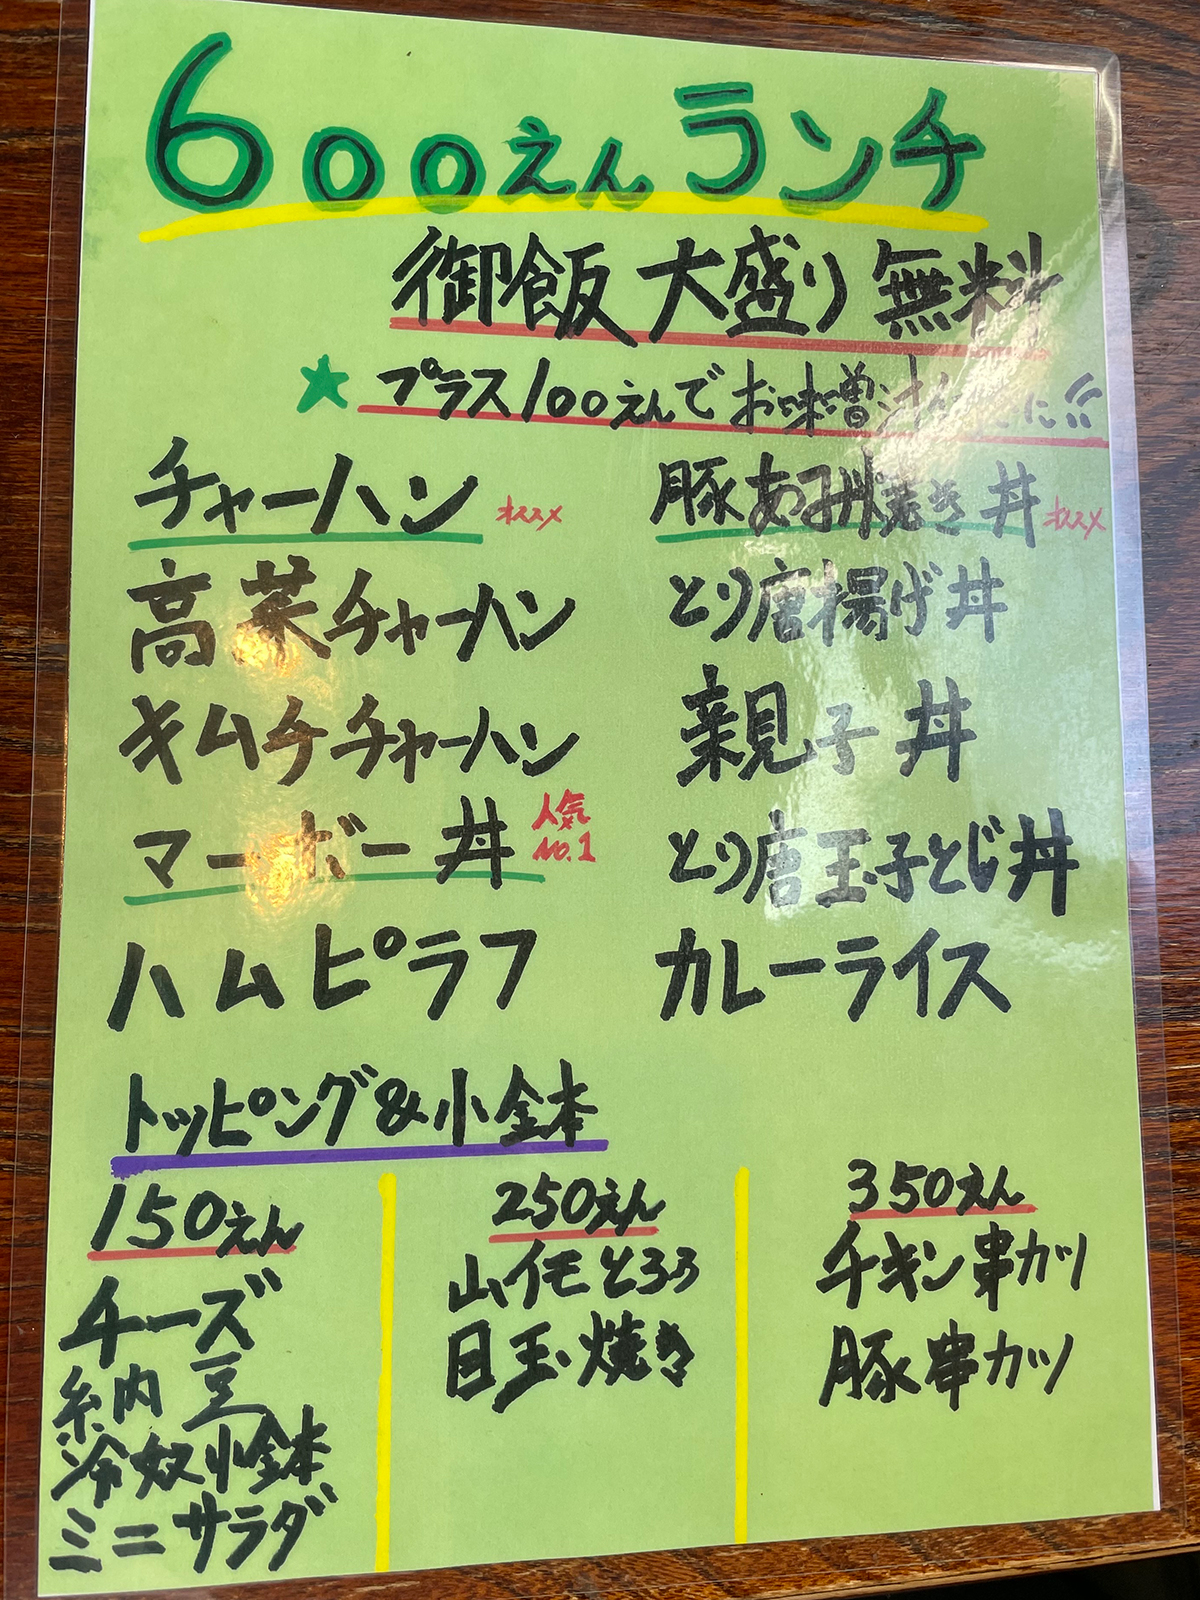 600えんランチ
御飯大盛り無料
★プラス100えんでお味噌汁 に!!
チャーハン オススメ
高菜チャーハン
キムチチャーハン
マーボー丼 人気No.1
ハムピラフ
豚あみ焼き丼 オススメ
とり唐揚げ丼
親子丼
とり唐玉子とじ丼
カレーライス
トッピング&小鉢
150えん
チーズ
納豆
冷奴小鉢
ミニサラダ
250えん
山イモとろろ
目玉焼き
350えん
チキン串カツ
豚串カツ